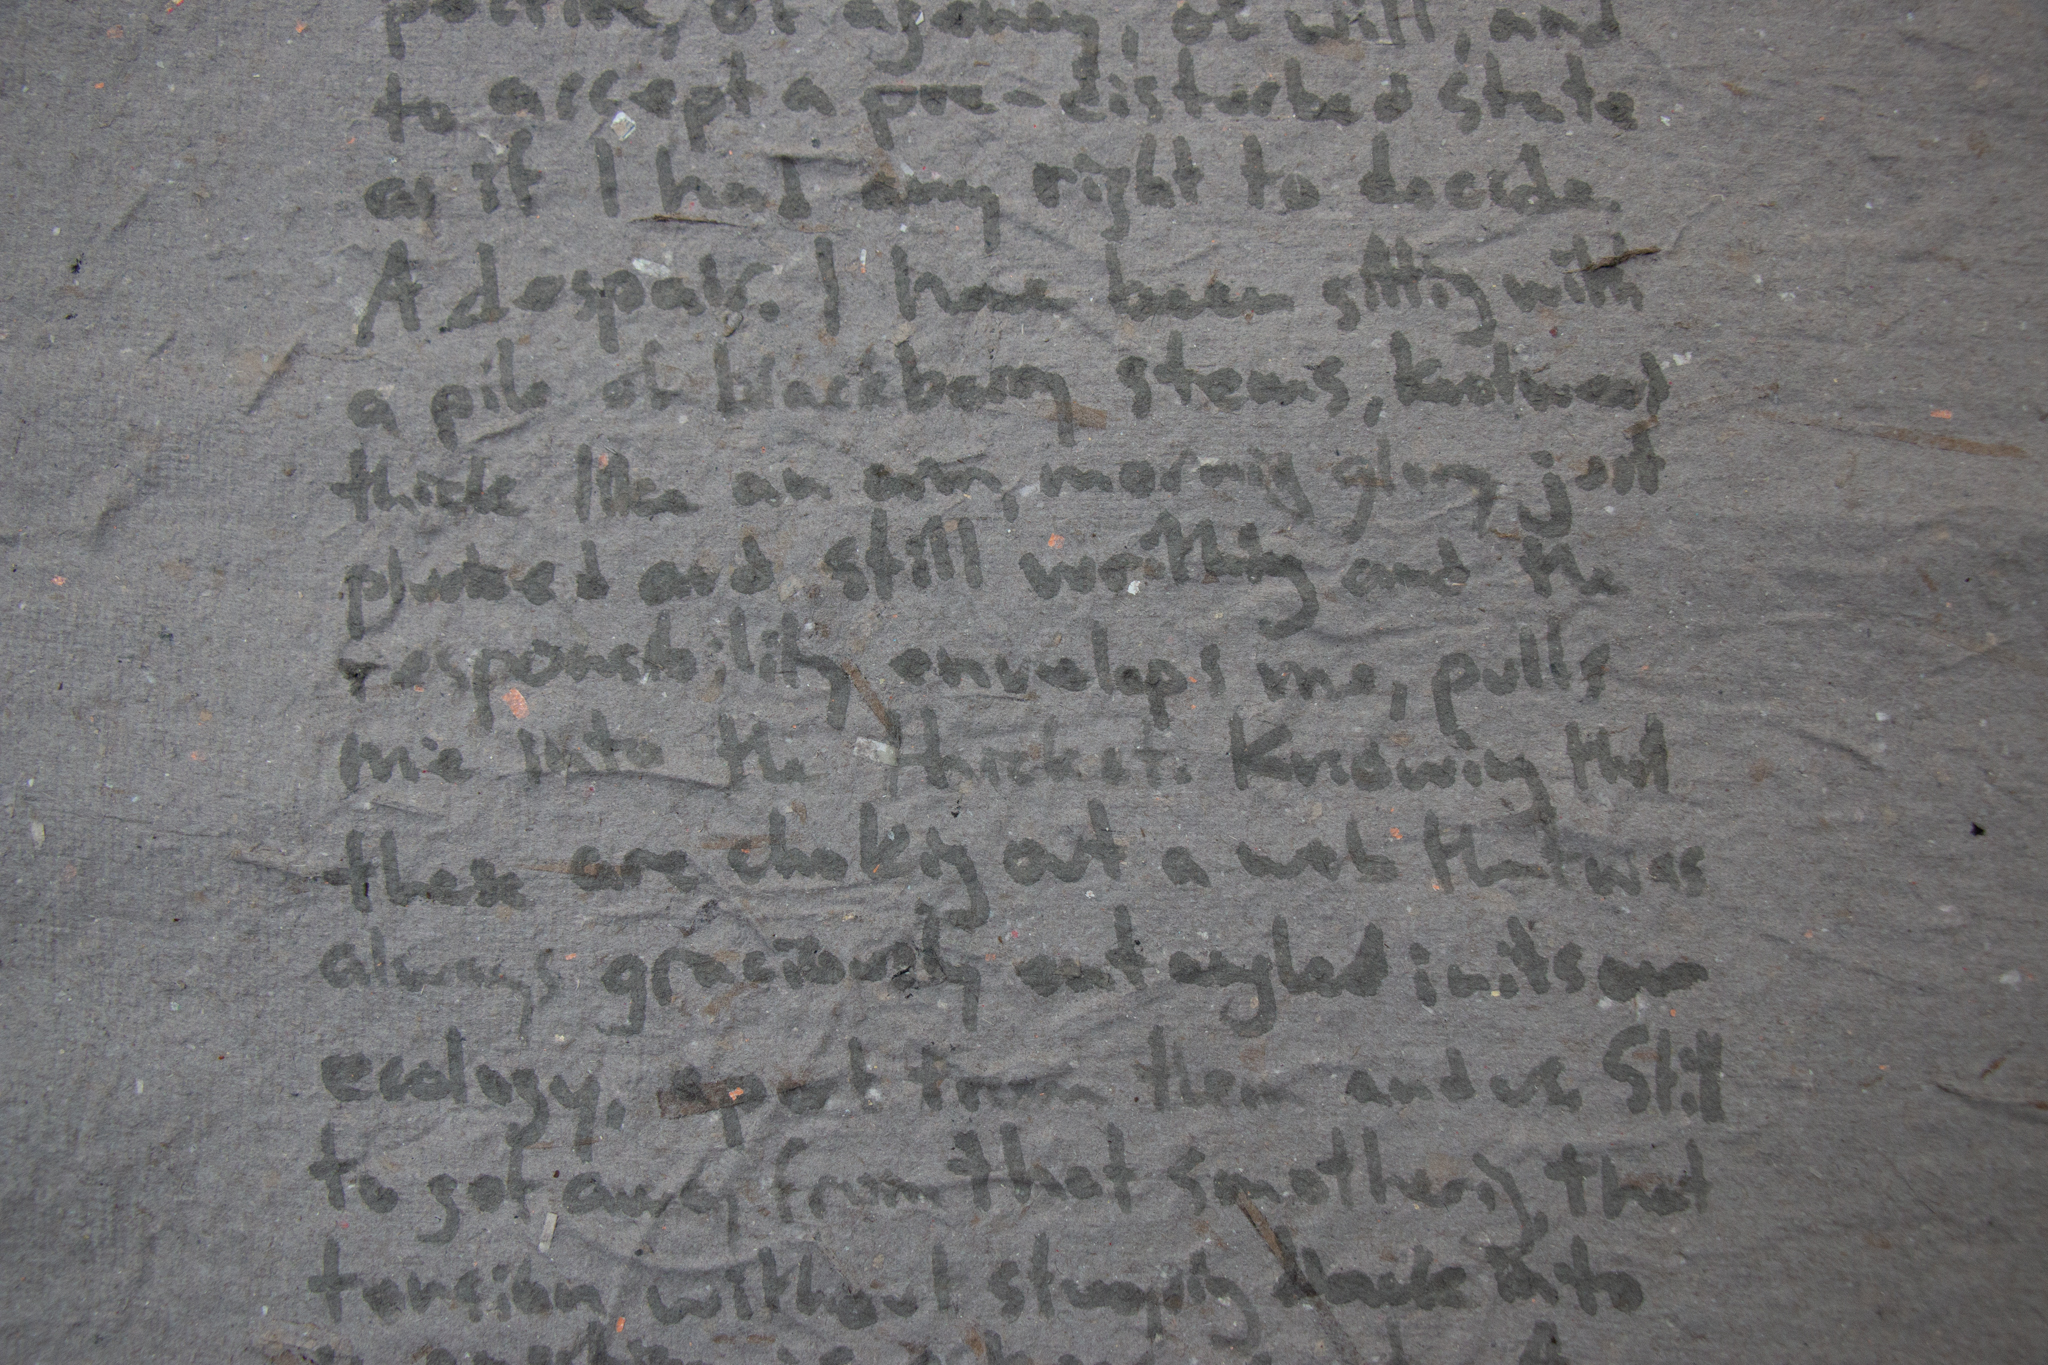 of agency, of will, and
to accept a pre-disturbed state
as if I had any right to decide.
A despair. I have been sitting with
a pile of blackberry stems, knotweed
thick like an arm, morning glory just
plucked and still writhing and the
responsibility envelops me, pulls
me into the thicket. Knowing that
these are choking out a web that was
always graciously entangled in its own
ecology, apart from them and us. Still
to get away from that smothering, that
tension, without stomping back into